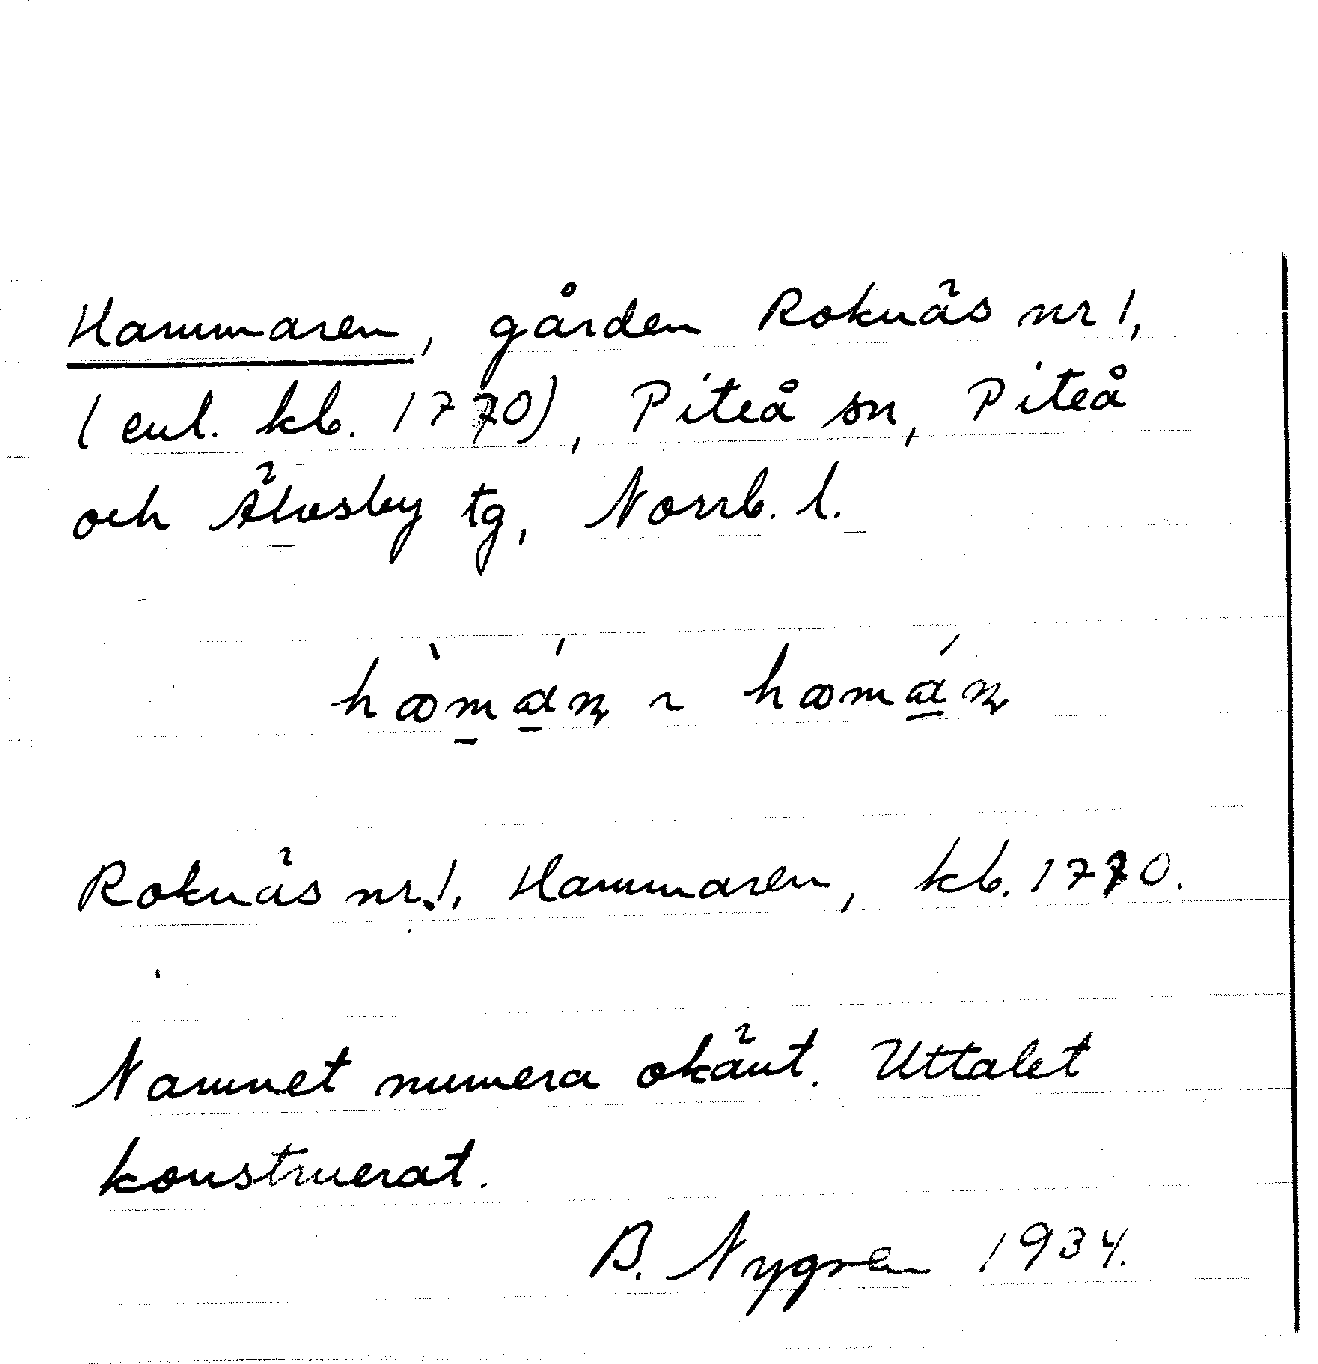 Hammaren, gården Roknäs nr 1,
(enl. kb. 1770), Piteå sn, Piteå
och Älvsby tg, Norrb. l.
Roknäs nr. 1. Hammaren, kb. 1770.
Namnet numera okänt. Uttalet
konstruerat.
B. Nygren 1934.